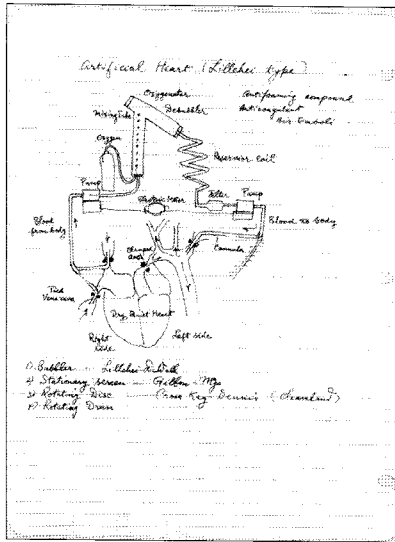 Artificial Heart (Lillehei type)
Oxygenator
Debubbler
Antifoaming compound
Anticoagulant
Air Emboli
Mixing Tube
Oxygen
Reservoir Coil
Pump
Electric Motor
Filter
Pump
Blood from body
Blood to body
Clamped aorta
Cannula
Tied Vena cava
Dry Quiet Heart
Right side
Left side
1) Bubbler Lillehei DeWall
2) Stationary screen Gibbon - Mayo
3) Rotating Disc Cross Kay Dennis (Cleveland)
4) Rotating Drum